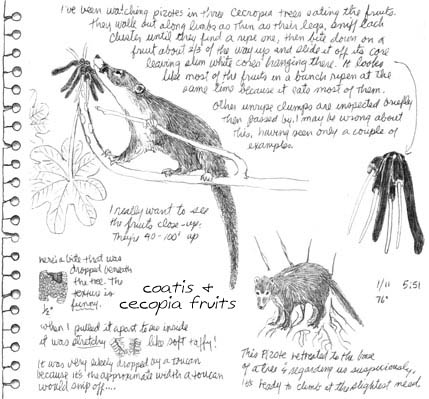 I've been watching pizotes in three Cecropia trees eating the fruits.
They walk out along limbs as thin as their legs, sniff each
cluster until they find a ripe one, then bite down on a
fruit about 2/3 of the way up and slide it off its core
leaving slim white cores hanging there. It looks
like most of the fruits in a bunch ripen at the
same time because it eats most of them.
Other unripe clumps are inspected briefly
then passed by. I may be wrong about
this, having seen only a couple of
examples.
I really want to see
the fruits close-up.
They're 40-100' up
here's a bite that was
dropped beneath
the tree. The
texture is
funny.
1/2"
coatis &
cecopia fruits
1/11 5:51
76°
when I pulled it apart to see inside
it was stretchy like soft taffy!
It was very likely dropped by a toucan
because it's the approximate width a toucan
would snip off....
This Pizote retreated to the base
of a tree & regarding us suspiciously,
it's ready to climb at the slightest need.